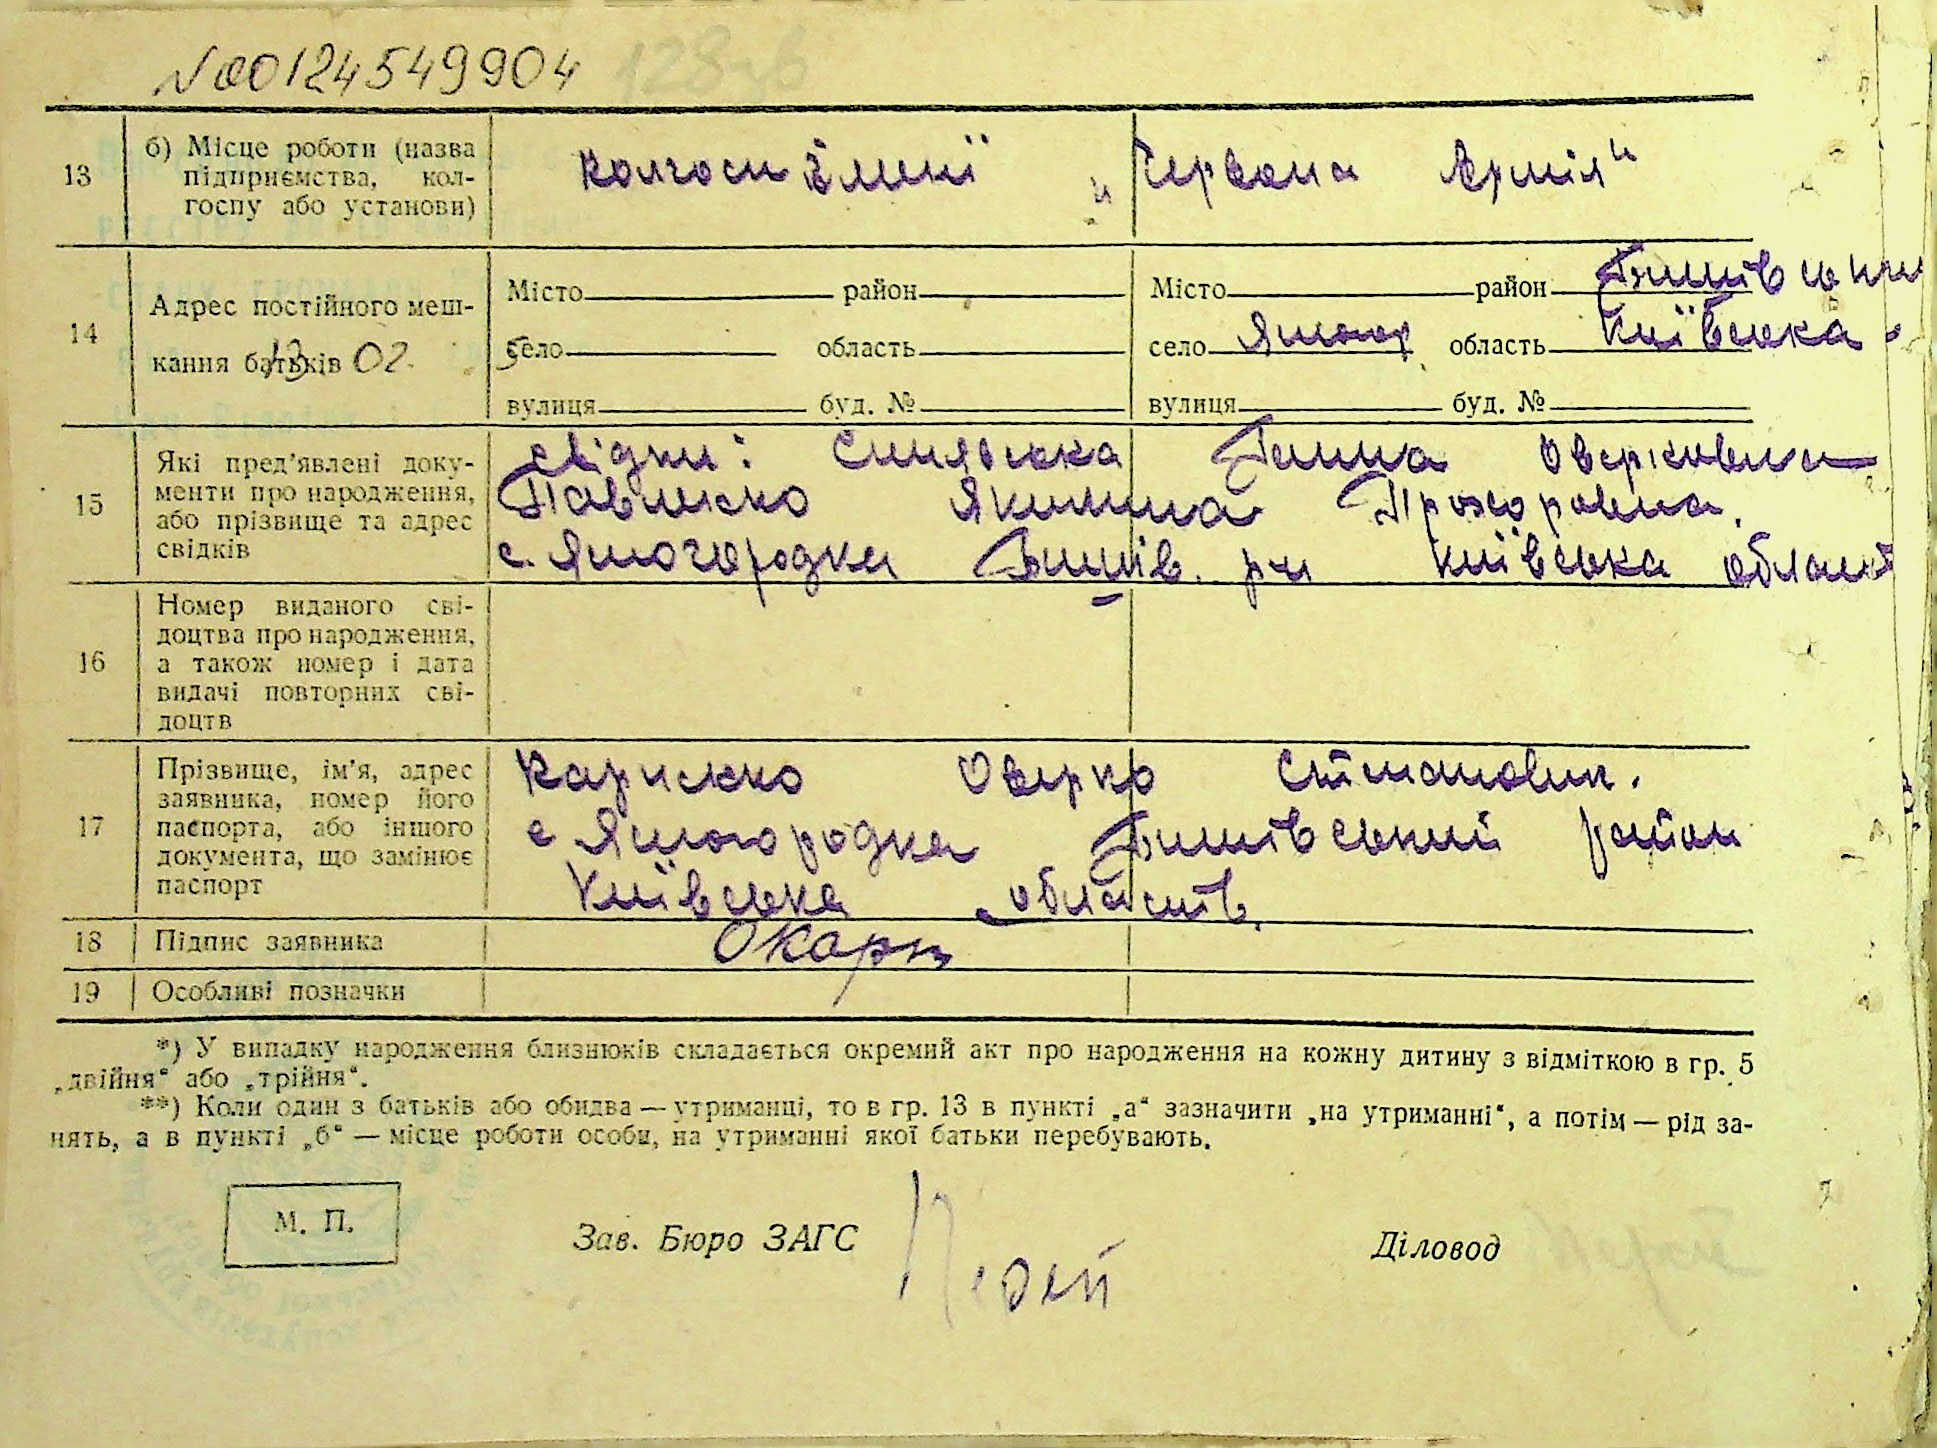 №00124549904 128зв
13 б) Місце роботи (назва підприємства, кол-
госпу або установи)
колгосп імені „Червона Армія"
14 Адрес постійного меш-
кання батьків
13 02.
Місто район
село область
вулиця буд. №
Місто район Бишівський
село Ясногор область Київська
вулиця буд. №
15 Які пред'явлені доку-
менти про народження,
або прізвище та адрес
свідків
свідки: Синявська Ганна Оверковна
Павленко Якилина Прохоровна
с. Ясногородка Бишів. р-н Київська область
16 Номер виданого сві-
доцтва про народження,
а також номер і дата
видачі повторних сві-
доцтв
17 Прізвище, ім'я, адрес
заявника, номер його
паспорта, або іншого
документа, що замінює
паспорт
Оверко Степанович.
с Ясногородка Бишівський район
Київська область.
18 Підпис заявника
19 Особливі позначки
*) У випадку народження близнюків складається окремий акт про народження на кожну дитину з відміткою в гр. 5
„двійня" або „трійня".
**) Коли один з батьків або обидва — утриманці, то в гр. 13 в пункті „а" зазначити „на утриманні", а потім — рід за-
нять, а в пункті „б" — місце роботи особи, на утриманні якої батьки перебувають.
М. П.
Зав. Бюро ЗАГС
Діловод